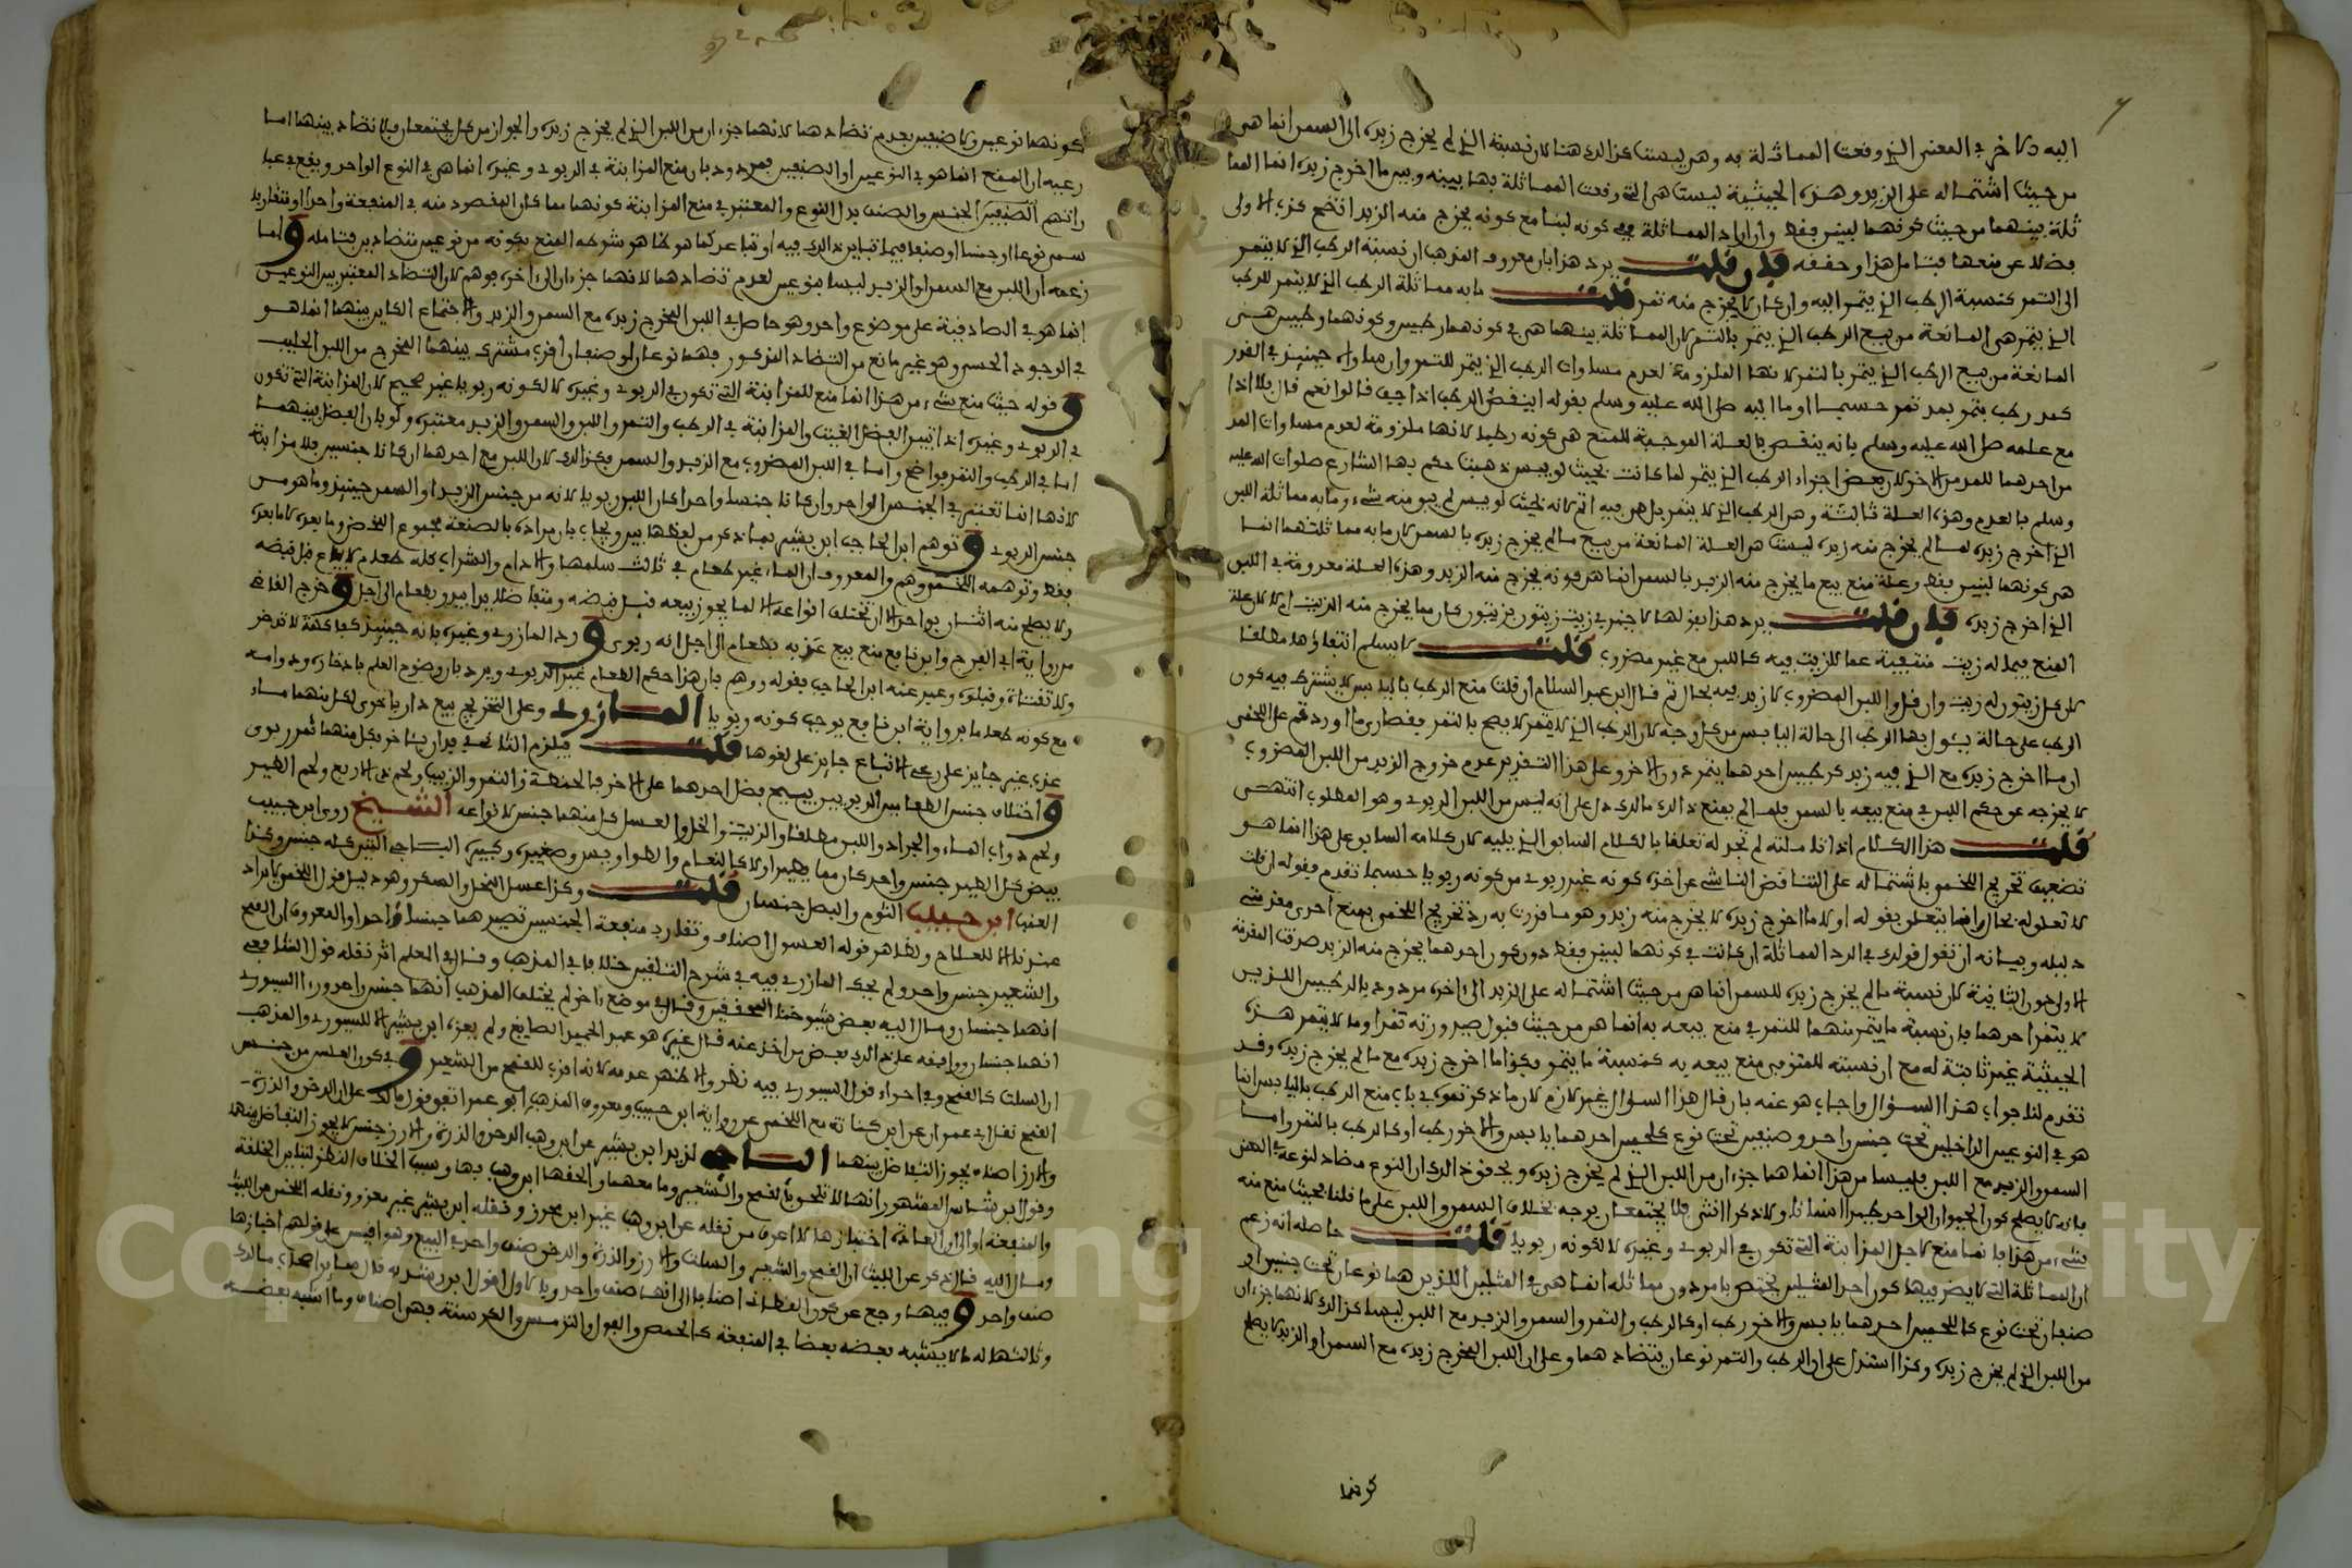 اليه دلالا خر في المعنى الذي وقعت المماثلة به وهي ليست كذلك هنا لان نسبة الذي لم يخرج زبده الى السمن انما هي
من حيث اشتماله على الزبد وهذه الحيثية ليست هي التي وقعت المماثلة بها بينه وبين ما اخرج زبده انما المما
ثلة بينهما من حيث كونهما لبنين فقط وان اراد المماثلة في كونه لبنا مع كونه يخرج منه الزبد اتضح كذب الاولى
فضلا عن منعها فتامل هذا وحققه فان قلت يرد هذا بان معروف المذهب ان نسبة الرطب الذي لا يتمر
الى التمر كنسبة الرطب الذي يتمر اليه وان كان لا يخرج منه تمر قلت ما به مماثلة الرطب الذي لا يتمر للرطب
الذي يتمر هي المانعة من بيع الرطب الذي يتمر بالتمر لان المماثلة بينهما هي في كونهما رطبين وكونهما رطبين هي
المانعة من بيع الرطب الذي يتمر بالتمر لانها الملزومة لعدم مساوات الرطب الذي يتمر للتمر وان ساواه حينئذ في القدر
كمد رطب بتمر بمد تمر حسبما اوما اليه صلى الله عليه وسلم بقوله اينقص الرطب اذا جف قالوا نعم قال فلا اذا
مع علمه صلى الله عليه وسلم بانه ينقص فالعلة الموجبة للمنع هي كونه رطبا لانها ملزومة لعدم مساوات المد
من احدهما للمد من الاخر لان بعض اجزاء الرطب الذي يتمر لما كانت بحيث لو يبس ذهبت حكم بها الشارع صلوات الله عليه
وسلم بالعدم وهذه العلة ثابتة وهي الرطب الذي لا يتمر بل هي فيه اتم لانه بحيث لو يبس لم يبق منه شيء وما به مماثلة اللبن
الذي اخرج زبده لما لم يخرج منه زبده ليست هي العلة المانعة من بيع ما لم يخرج زبده بالسمن لان ما به مماثلتهما انما
هي كونهما لبنين فقط وعلة منع بيع ما يخرج منه الزبد بالسمن انما هي كونه يخرج منه الزبد وهذه العلة معدومة في اللبن
الذي اخرج زبده فان قلت يرد هذا بقولها لا خير في زيت زيتون بزيتون كان مما يخرج منه الزيت ام لا لان علة
المنع فيما له زيت منتفية عما لا زيت فيه كاللبن مع غير مضروب قلت لا يسلم انتفاؤها مطلقا
لان كل زيتون له زيت وان قل واللبن المضروب لا زبد فيه بحال ثم قال ابن عبد السلام ان قلت منع الرطب باليابس لا يشترط فيه كون
الرطب على حالة يئول بها الرطب الى حالة اليابس من كل وجه لان الرطب الذي لا يتمر لا يصح بالتمر فقصار وما اوردتم على اللخمي
ان ما اخرج زبده مع الذي فيه زبد كرطبين احدهما يتمر دون الاخر وعلى هذا التقدير عدم خروج الزبد من اللبن المضروب
لا يخرجه عن حكم اللبن في منع بيعه بالسمن فلما لم يمنع ذلك مالك دل على انه ليس من اللبن الربوي وهو المطلوب انتهى
قلت هذا الكلام اذا تاملته لم تجد له تعلقا بالكلام السابق الذي يليه لان كلامه السابق على هذا انما هو
تضعيف تخريج اللخمي باشتماله على التناقض الناشي عن اخذه كونه غير ربوي من كونه ربويا حسبما تقدم فقوله ان قلت
لا تعلق له بحال وانما يتعلق بقوله اولا ما اخرج زبده لا يخرج منه زبد وهو ما قررت به رد تخريج اللخمي بمنع احدى مقدمتي
دليله وبيانه ان تقول قولك في الرد المماثلة ان كانت في كونهما لبنين فقط دون كون احدهما يخرج منه الزبد صدقت المقدمة
الاولى دون الثانية لان نسبة ما لم يخرج زبده للسمن انما هي من حيث اشتماله على الزبد الى اخره مردود بالرطبين اللذين
لا يتمر احدهما فان نسبة ما يتمر منهما للتمر في منع بيعه به انما هي من حيث قبول صيرورته تمرا وما لا يتمر هذه
الحيثية غير ثابتة له مع ان نسبته للتمر في منع بيعه به كنسبة ما يتمر فكذا ما اخرج زبده مع ما لم يخرج زبده وقد
تقدم لنا جواب هذا السؤال واجاب هو عنه بان قال هذا السؤال غير لازم لان ما ذكرتموه في باب منع الرطب باليابس انما
هو في النوعين الداخلين تحت جنس واحد وصنفين تحت نوع كلحمين احدهما يابس والاخر رطب او كالرطب بالتمر واما
السمن والزبد مع اللبن فليسا من هذا انما هما جزءان من اللبن الذي لم يخرج زبده
فانه لا يصح كون الحيوان الواحد طيرا انسانا ولا ذكرا انثى فلا يجتمعان بوجه بخلاف السمن واللبن على ما قلنا بحيث منع منه
شيء من هذا فانما منع لاجل المزابنة التي تكون في الربوي وغيره لا لكونه ربويا قلت حاصله انه زعم
ان المماثلة التي لا يضر فيها كون احد المثلين يختص بامر دون مماثله انما هي في المثلين اللذين هما نوعان تحت جنس او
صنفان تحت نوع كاللحمين احدهما يابس والاخر رطب او كالرطب والتمر والسمن والزبد مع اللبن ليسا كذلك لانهما جزءان
من اللبن الذي لم يخرج زبده وكذا استدل على ان الرطب والتمر نوعان بتضادهما وعلى ان اللبن المخرج زبده مع السمن او الزبد لا يصح
كونهما
كونهما نوعين ولا صنفين بعدم تضادهما لانهما جزءان من اللبن الذي لم يخرج زبده والجزءان من كل يجتمعان فلا تضاد بينهما اما
زعمه ان المنع انما هو في النوعين او الصنفين فمردود بان منع المزابنة في الربوي وغيره انما هي في النوع الواحد ويقع في عبا
راتهم الصنفين الجنس والصنف بدل النوع والمعتبر في منع المزابنة كونهما مما كان المقصود منه في المنفعة واحدا او متقاربا
سمي نوعا او جنسا او صنفا فيما تباين ذلك فيه او تباعد كما هو كما هو شرطه المنع بكونه من نوعين متضادين فتامله واما
زعمه ان اللبن مع السمن او الزبد ليسا بنوعين لعدم تضادهما لانهما جزءان الى اخره فوهم لان التضاد المعتبر بين النوعين
انما هو في الصادقية على موضوع واحد وهو حاصل في اللبن المخرج زبده مع السمن والزبد والاجتماع الكاين بينهما انما هو
في الوجود الحسي وهو غير مانع من التضاد المذكور فهما نوعان او صنفان لذي مشترك بينهما المخرج من اللبن الحليب
وقوله حيث منع شيء من هذا انما منع للمزابنة التي تكون في الربوي وغيره لا لكونه ربويا غير صحيح لان المزابنة التي تكون
في الربوي وغيره اذا تبين الفضل الغيت والمزابنة في الرطب والتمر واللبن والسمن والزبد معتبرة ولو بان الفضل بينهما
اما في الرطب والتمر فواضح واما في اللبن المضروب مع الزبد والسمن فكذلك لان اللبن مع احدهما ان كانا جنسين فلا مزابنة
لانها انما تعتبر في الجنس الواحد وان كانا جنسا واحدا كان اللبن ربويا لانه من جنس الزبد او السمن حينئذ وما هو من
جنس الربوي وتوهم ابن الحاجب ابن بشير بما ذكر من لفظها بين ويجاب بان مراده بالصنعة مجموع المخض وما بعده لا ما بعده
فقط وتوهمه اللخمي وهم والمعروف ان الماء غير طعام في ثالث سلمها والادام والشراب كله طعام لا يباع قبل قبضه
ولا يصلح منه اثنان بواحد الا ان تختلف انواعه الا الماء يجوز بيعه قبل قبضه ومتفاضلا يدا بيد وبطعام الى اجل وخرج القاضي
من رواية ابي الفرج وابن نافع منع بيع عذبه بطعام الى اجل انه ربوي ورد المازري وغيره بانه حينئذ كفاكهة لا تدخر
ولا تقتات وقبلوه وعبر عنه ابن الحاجب بقوله ووهم بان هذا حكم الطعام غير الربوي ويرد بان وضوح العلم بادخاره ودوامه
مع كونه طعاما برواية ابن نافع يوجب كونه ربويا المازري وعلى التخريج بيع دار باخرى لكل منهما ماء
عذب غير جايز على رعي الاتباع جايز على لغوها قلت فيلزم التناقض في دار باخرى لكل منهما تمر ربوي
واختلاف جنس الطعامين الربويين يبيح فضل احدهما على الاخر فالحنطة والتمر والزبيب ولحم ذي الاربع ولحم الطير
ولحم دواب الماء والجراد واللبن مطلقا والزيت والخل والعسل كل منها جنس لانواعه الشيخ روى ابن حبيب
بيض كل الطير جنس واحد كان مما يطير او لا كالنعام والطواويس وصغيره وكبيره الباجي التين كله جنس وكذا
العنب ابن حبيب الثوم والبصل جنسان قلت وكذا عسل النحل والسكر وهو دليل قول اللخمي لا يراد
عندنا الا للعلاج وظاهر قوله العسول اصناف وتقارب منفعة الجنسين تصيرهما جنسا واحدا والمعروف ان القمح
والشعير جنس واحد ولم يحك المازري فيه في شرح التلقين خلافا في المذهب وقال في المعلم اثر نقله قول الشافعي
انهما جنسان ومال اليه بعض شيوخنا المحققين وقال في موضع اخر لم يختلف المذهب انهما جنس واحد ورءا السيوري
انهما جنسان ووافقه على ذلك بعض من اخذ عنه قال غيره هو عبد الحميد الصايغ ولم يعزه ابن بشير الا للسيوري والمذهب
ان السلت كالقمح وفي اجراء قول السيوري فيه نظر والاظهر عدمه لانه اقرب للقمح من الشعير وفي كون العلس من جنس
القمح نقل ابي عمران عن ابن كنانة مع اللخمي عن رواية ابن حبيب ومعروف المذهب ابو عمر اتفق قول مالك على ان الدخن والذرة
والارز اصناف يجوز التفاضل بينهما الباجي لزيد ابن بشير عن ابن وهب الدخن والذرة والارز جنس لا يجوز التفاضل بينها
وقول ابن شاس المشهور انها لا تلحق بالقمح والشعير وما معهما والحقها ابن وهب بها وسبب الخلاف النظر لتباين الخلقة
والمنفعة او الى ان العادة اختبازها لا اعرف من نقله عن ابن وهب غير ابن محرز ونقله ابن بشير غير معزو ونقله اللخمي عن الليث
ومال اليه قال ذكر عن الليث ان القمح والشعير والسلت والارز والذرة والدخن صنف واحد في البيع وهو اقيس على قولهم اخبازها
صنف واحد وفيها رجع عن كون القطاني اصنافا الى انها صنف واحد وبالاول اقول ابن رشد به قال جماعة من اصحاب مالك
وثالثها له ما لا يشبه بعضه بعضا في المنفعة كالحمص والفول والترمس والكرسنة فهي اصناف وما اشبه بعضه